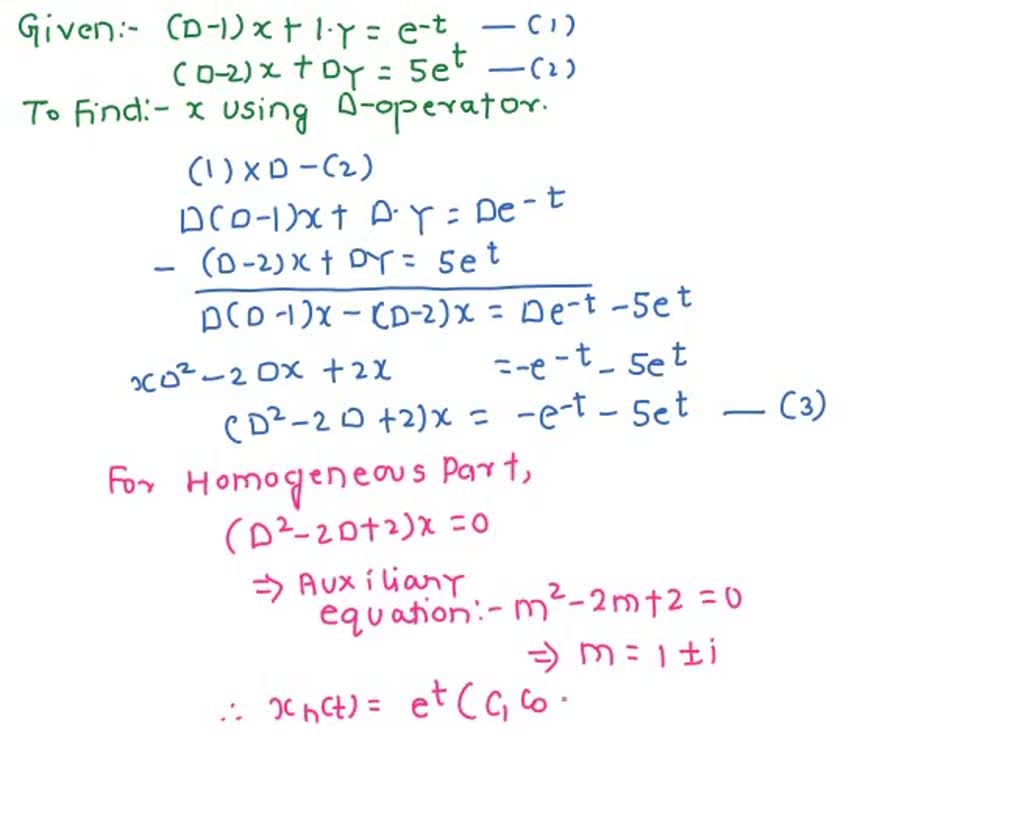 Given:- (D-1)x + 1·y = e^-t — (1)
(D-2)x + Dy = 5e^t — (2)
To Find:- x using D-operator.
(1) x D - (2)
D(D-1)x + D·y = De^-t
- (D-2)x + Dy = 5e^t
D(D-1)x - (D-2)x = De^-t - 5e^t
xD² - 2Dx + 2x = -e^-t - 5e^t
(D² - 2D + 2)x = -e^-t - 5e^t — (3)
For Homogeneous Part,
(D² - 2D + 2)x = 0
⇒ Auxiliary
equation:- m² - 2m + 2 = 0
⇒ m = 1 ± i
∴ x_h(t) = e^t (C₁ co